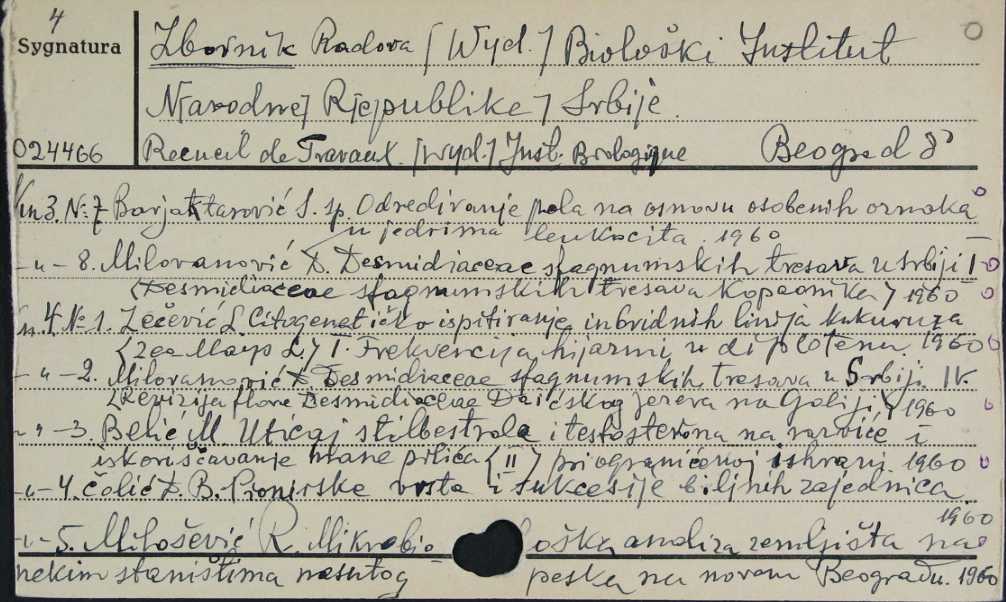 4
Sygnatura
Zbornik Radova [Wyd.] Biološki Institut
N[arodne] R[epublike] Srbije.
024466 Recueil de Travaux. [Wyd.] Inst. Biologique Beograd 8°
Kn 3. № 7 Barjaktarović S. sp. Odredivanje pola na osnovu osobenih oznaka
u jedrima leukocita. 1960
-„- 8. Milovanović D. Desmidiaceae sfagnumskih tresava u Srbiji I
(Desmidiaceae sfagnumskih tresava Kopaonika) 1960
Kn. 4 № 1. Zečević L. Citogenetičko ispitivanje inbridnih linija kukuruza
(Zea Mays L.) I. Frekvencija hijazmi u diplotenu. 1960
-„- 2. Milovanović D. Desmidiaceae sfagnumskih tresava u Srbiji IV.
(Revizija flore Desmidiaceae Daićskog jezera na Goliji) 1960
-„- 3. Belić M. Uticaj stilbestrola i testosterona na razviće i
iskorišćavanje hrane pilića (II) pri ograničenoj ishrani. 1960
-„- 4. Čolić D. B. Pionirske vrste i sukcesije biljnih zajednica.
1960
-„- 5. Milošević R. Mikrobio oška analiza zemljišta na
nekim staništima nasutog peska na novom Beogradu. 1960